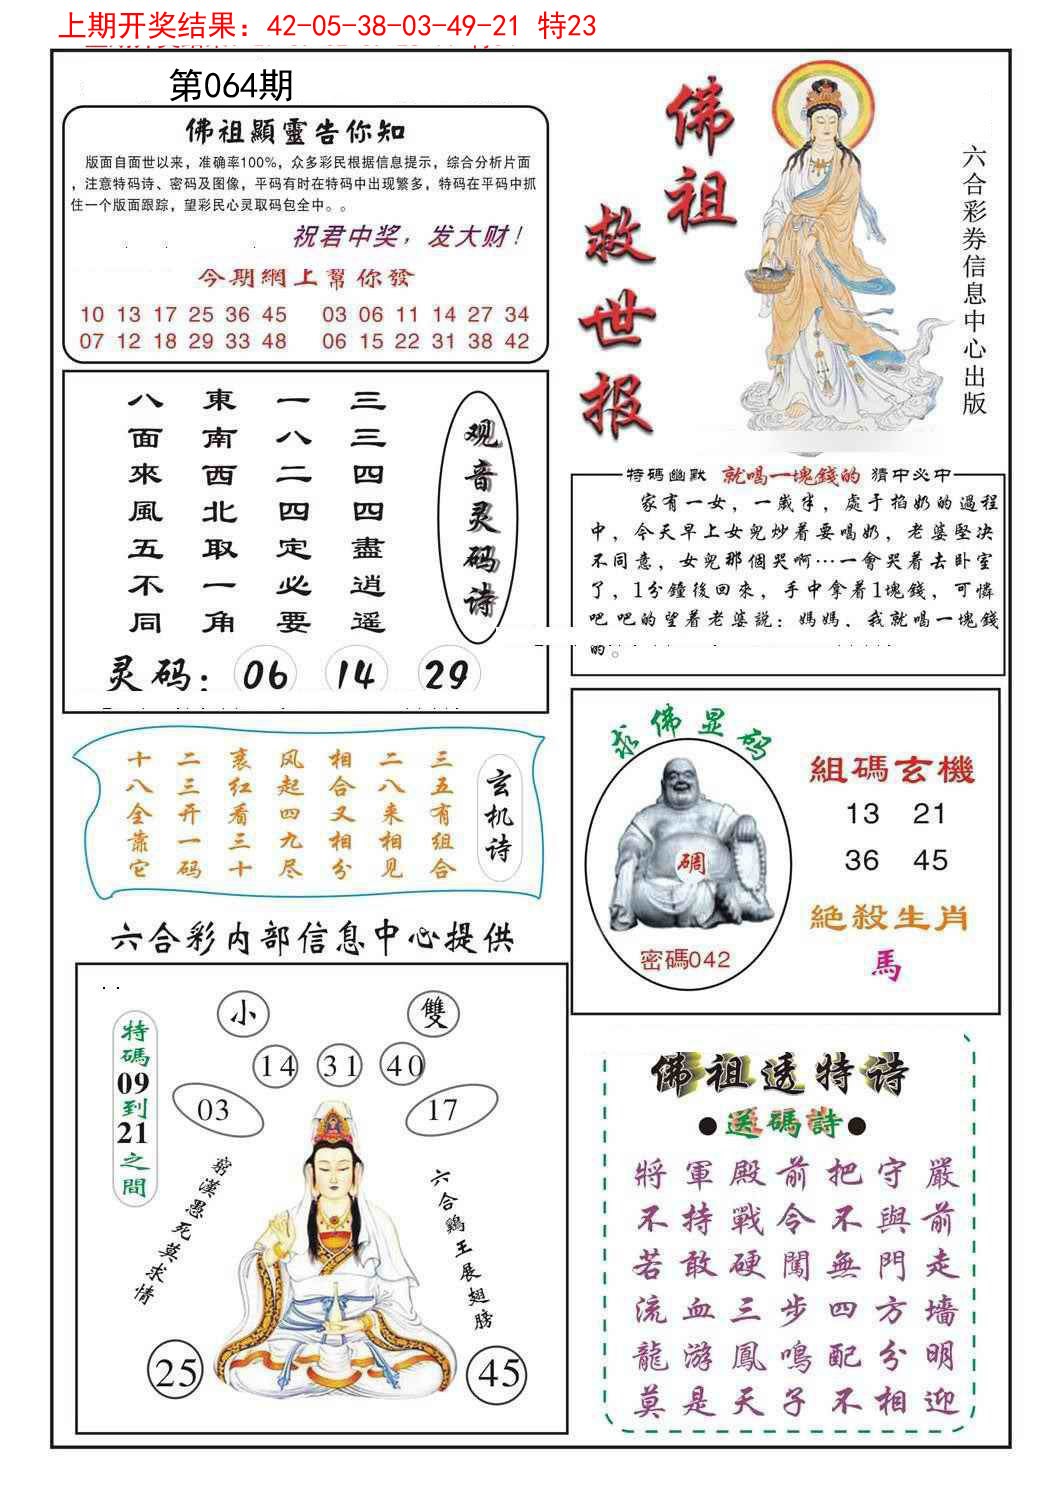 上期开奖结果：42-05-38-03-49-21 特23
第064期
佛祖顯靈告你知
版面自面世以来，准确率100%，众多彩民根据信息提示，综合分析片面
，注意特码诗、密码及图像，平码有时在特码中出现繁多，特码在平码中抓
住一个版面跟踪，望彩民心灵取码包全中。。
祝君中奖，发大财！
今期網上幫你發
10 13 17 25 36 45 03 06 11 14 27 34
07 12 18 29 33 48 06 15 22 31 38 42
佛祖
救世报
六合彩券信息中心出版
观音灵码诗
三三四四盡逍遥
一八二四定必要
東南西北取一角
八面來風五不同
灵码：06 14 29
特碼幽默 就喝一塊錢的 猜中必中
家有一女，一歲半，處于掐奶的過程
中，今天早上女兒炒着要喝奶，老婆堅决
不同意，女兒那個哭啊…一會哭着去卧室
了，1分鐘後回來，手中拿着1塊錢，可憐
吧吧的望着老婆説：媽媽，我就喝一塊錢
的。
玄机诗
三五有组合
二八来相见
相合又相分
风起四九尽
裹红看三十
二三开一码
十八全靠它
求佛显码
碉
密碼042
組碼玄機
13 21
36 45
絕殺生肖
馬
六合彩内部信息中心提供
特碼09到21之間
小 雙
14 31 40
03 17
窮漢愚死莫求情
六合鷄王展翅膀
25 45
佛祖透特诗
●送碼詩●
將軍殿前把守嚴
不持戰令不與前
若敢硬闖無門走
流血三步四方墻
龍游鳳鳴配分明
莫是天子不相迎